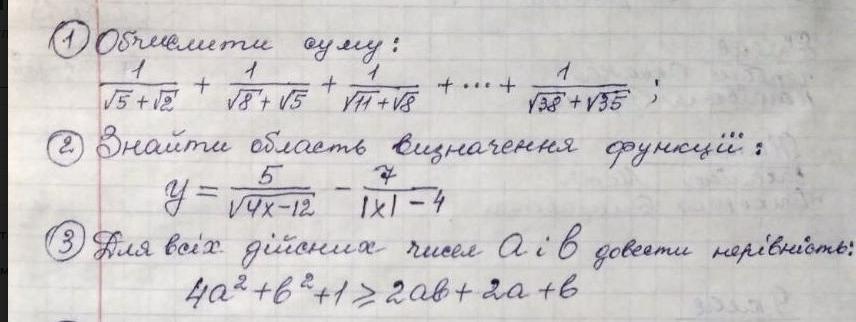 ① Обчислити суму:
1/(√5+√2) + 1/(√8+√5) + 1/(√11+√8) + ... + 1/(√38+√35) ;
② Знайти область визначення функції:
y = 5/√(4x-12) - 7/(|x|-4)
③ Для всіх дійсних чисел a і b довести нерівність:
4a²+b²+1 ⩾ 2ab+2a+b